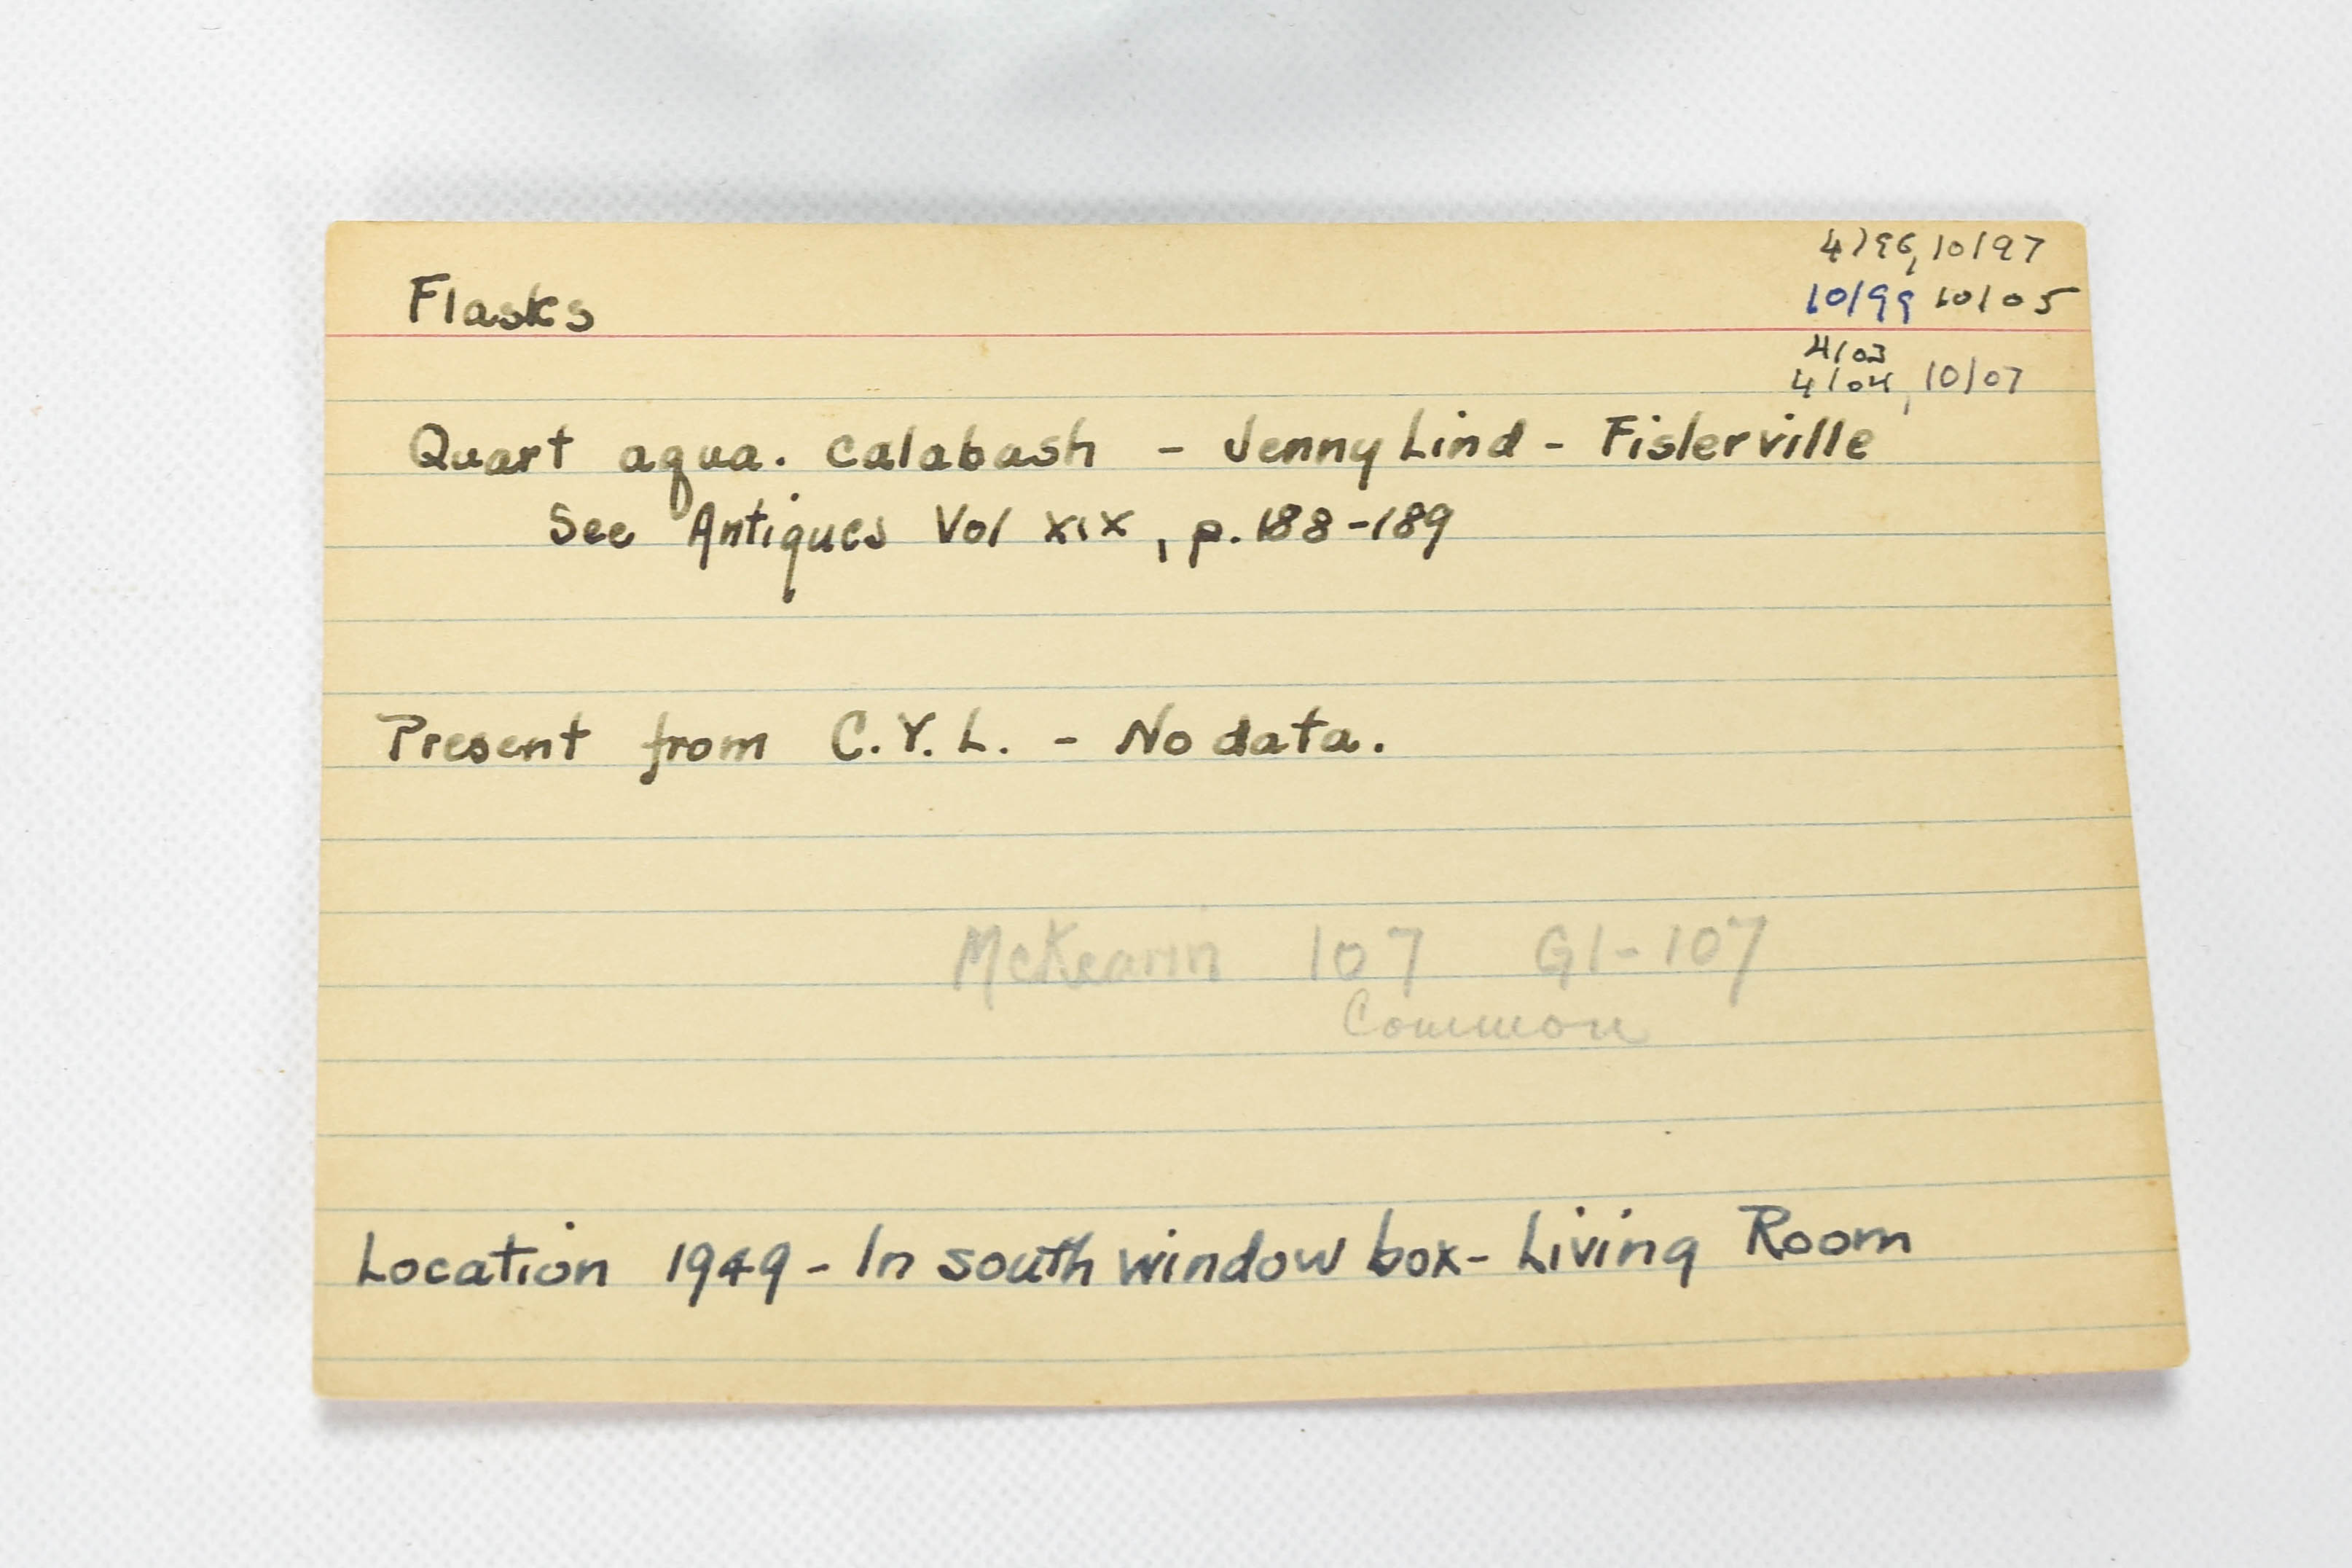 Flasks
4/96, 10/97
10/99 10/05
4/03
4/04, 10/07
Quart aqua. calabash - Jenny Lind - Fislerville
See Antiques Vol XIX, p. 188-189
Present from C.Y.L. - No data.
McKearin 107 G1-107
Common
Location 1949 - In south window box - Living Room